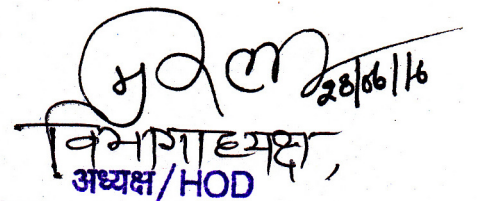 28/06/16
विभागाध्यक्ष,
अध्यक्ष/HOD